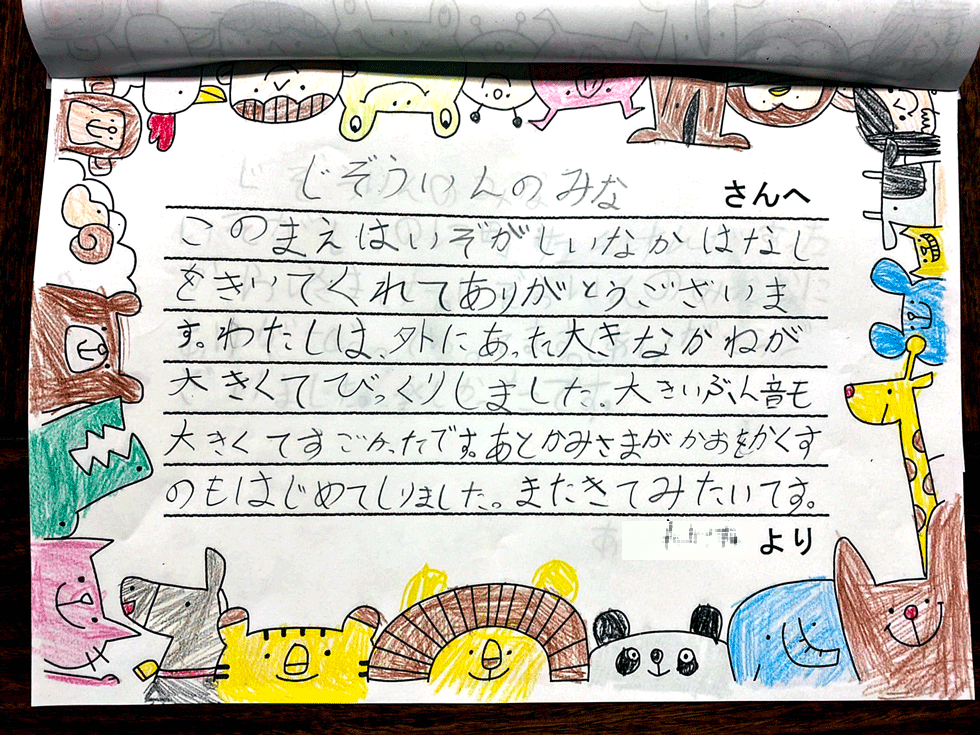 じぞういんのみな さんへ
このまえはいぞがしいなかはなし
をきいてくれてありがとうございま
す。わたしは、外にあった大きなかねが
大きくてびっくりしました。大きいぶん音も
大きくてすごかったです。あとかみさまがかおをかくす
のもはじめてしりました。またきてみたいです。
より